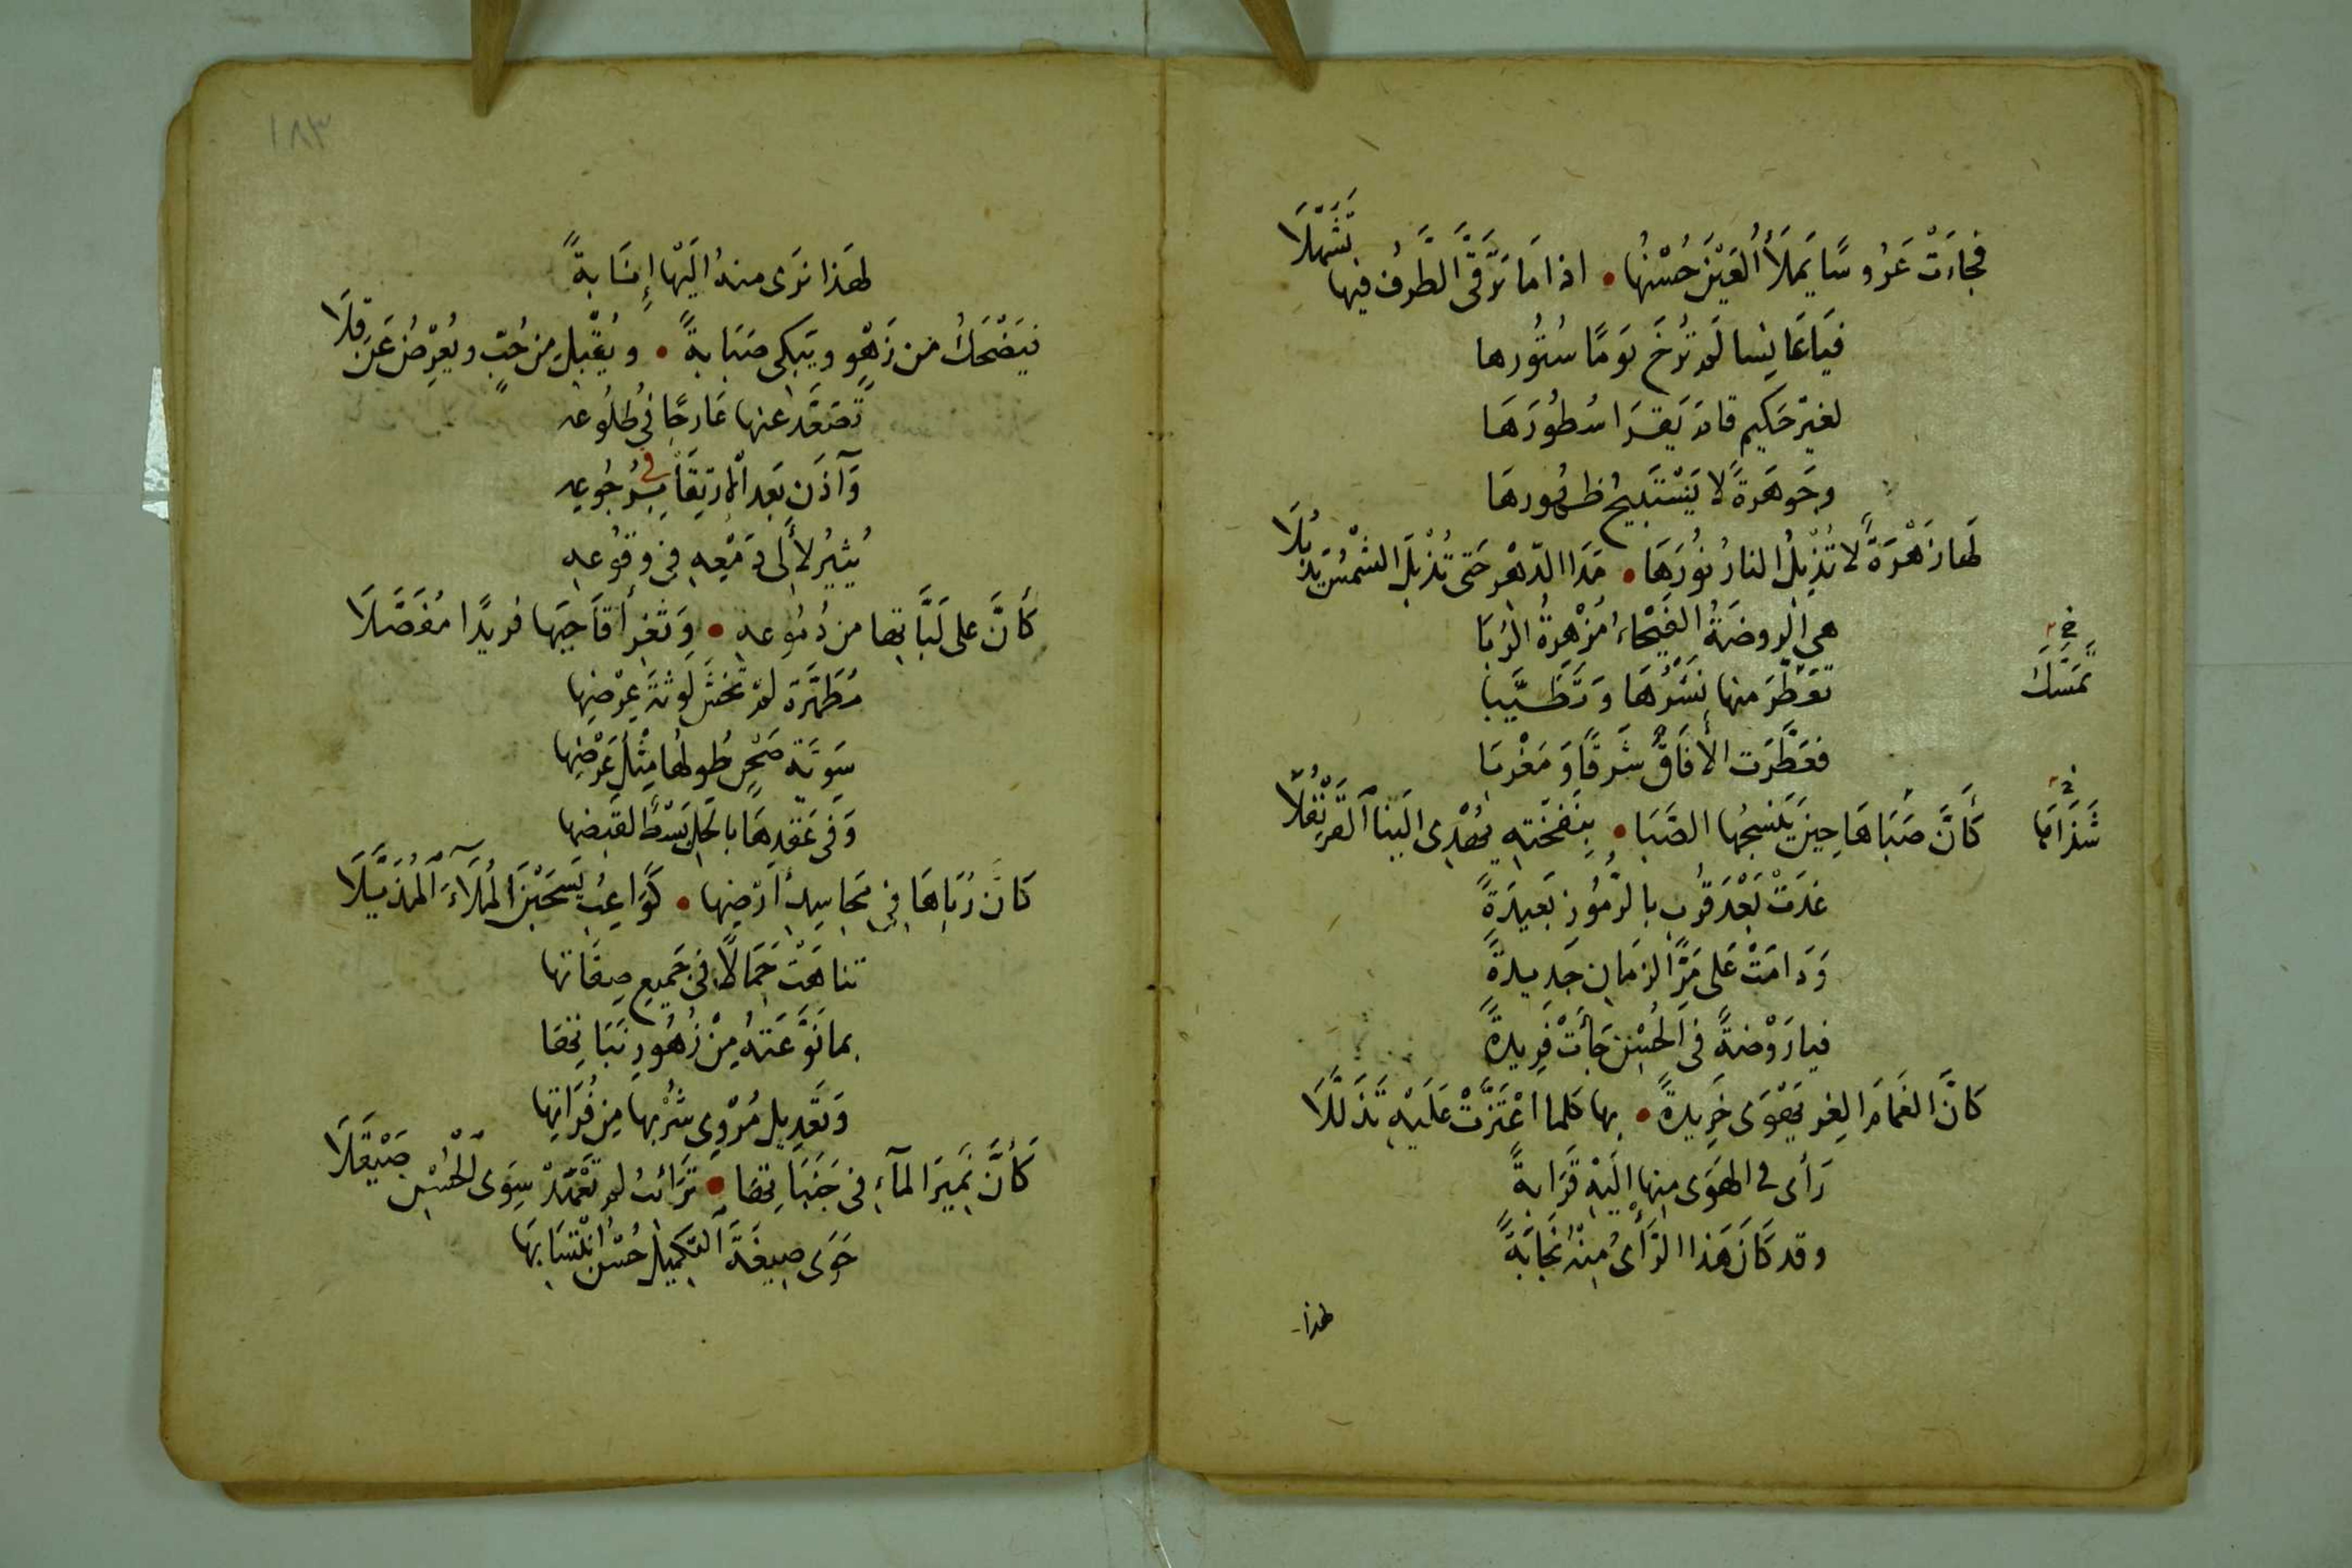 فجاءَتْ عَرُوسًا يَملَأُ العَيْنَ حُسْنُها • اذا مَا تَرَقَّى الطَّرفُ فيها تَسَهَّلَا
فيَا عَانِسا لَم تُرخَ يَومًا سُتُورها
لغيرِ حَكيم قام يَقرَا سُطُورَهَا
وجَوهَرةً لا يَسْتَبيحُ ظهُورهَا
لَها زَهْرَةٌ لا تُذْبِلُ النارُ نُورَهَا • مَدَا الدّهْرِ حَتى تُذْبِلَ الشّمْسُ يَذْبُلَا
هي الروضَةُ الفَيْحَاءُ مُزْهِرةُ الرُبَا
تَمَسَّكَ خ
تَعَطَّرَ منها نَشْرُهَا وَتَطَيَّبا
فعَطَّرَت الأفَاقَ شَرقًا وَمَغْربَا
شَذَاهَا خ
كَأَنَّ صَبَاهَا حِينَ يَنْسِجُها الصَّبَا • بِنَفحَتِهِ يُهْدِى الَينا القَرَنْفُلَا
غدَتْ بَعْدَ قُربٍ بالرّمُوزِ بَعيدَةً
وَدَامَتْ عَلى مَرِّ الزمَانِ جَدِيدةً
فيا رَوْضةً فى الحُسْنِ جَأَتْ فَرِيدةً
كانَّ الغمَامَ الغِر يَهْوَى خَرِيدةً • بها كلما اعْتَزَّتْ عَلَيْهِ تَذَلَّلَا
رَأى فى الهَوَى مِنها إلَيْهِ قَرَابةً
وقد كَانَ هَذا الرَّأىُ مِنْهُ نَجَابَةً
لهذا
١٨٣
لهَذا نرَى منهُ الَيْها إنسَابةً
فيَضْحَكُ من زَهْوٍ ويَبكى صَبَابةً • ويُقْبِل مِن حُبٍّ ويُعْرِضُ عَن قِلَا
تَصَعَّدَ عنها عَارجًا فى طُلُوعه
وَآذَن بَعد الارتِقَا فى بِرُجُوعهِ
يُثِيرُ لأَلى دَمْعِهِ فى وقُوعهِ
كَأَنَّ على لَبَّاتِها من دُمُوعهِ • وَثَغر أقَاحِيها فريدًا مُفَصَّلَا
مُطَهَّرَة لم تَخشَ لَوثةَ عِرْضِها
سَوِيَّة صَحْنٍ طُولها مِثْلُ عَرْضِها
وَفى عَقدِهَا بالحَلِ بَسْطٌ لقَبضِها
كانَّ رُبَاهَا فى مَحَاسِنِ أرْضِها • كَوَاعِبُ يَسْحَبْنَ المُلَآءَ المُذَيَّلَا
تناهَتْ جَمَالًا فى جَمِيعِ صِفَاتها
بما نَوَّعَتهُ مِنْ زُهُورِ نَبَاتِهَا
وَتَعدِيل مُرْوِي شُرْبِها مِن فُرَاتِها
كَأَنَّ نَمِيرَ المآءِ فى جَنَبَاتِهَا • تَرَائبُ لم تَعْهَدْ سِوَى الحُسْنِ صَيْقَلَا
حَوى صِيغَةَ التكمِيلِ حُسْنُ انْتِسَابهَا